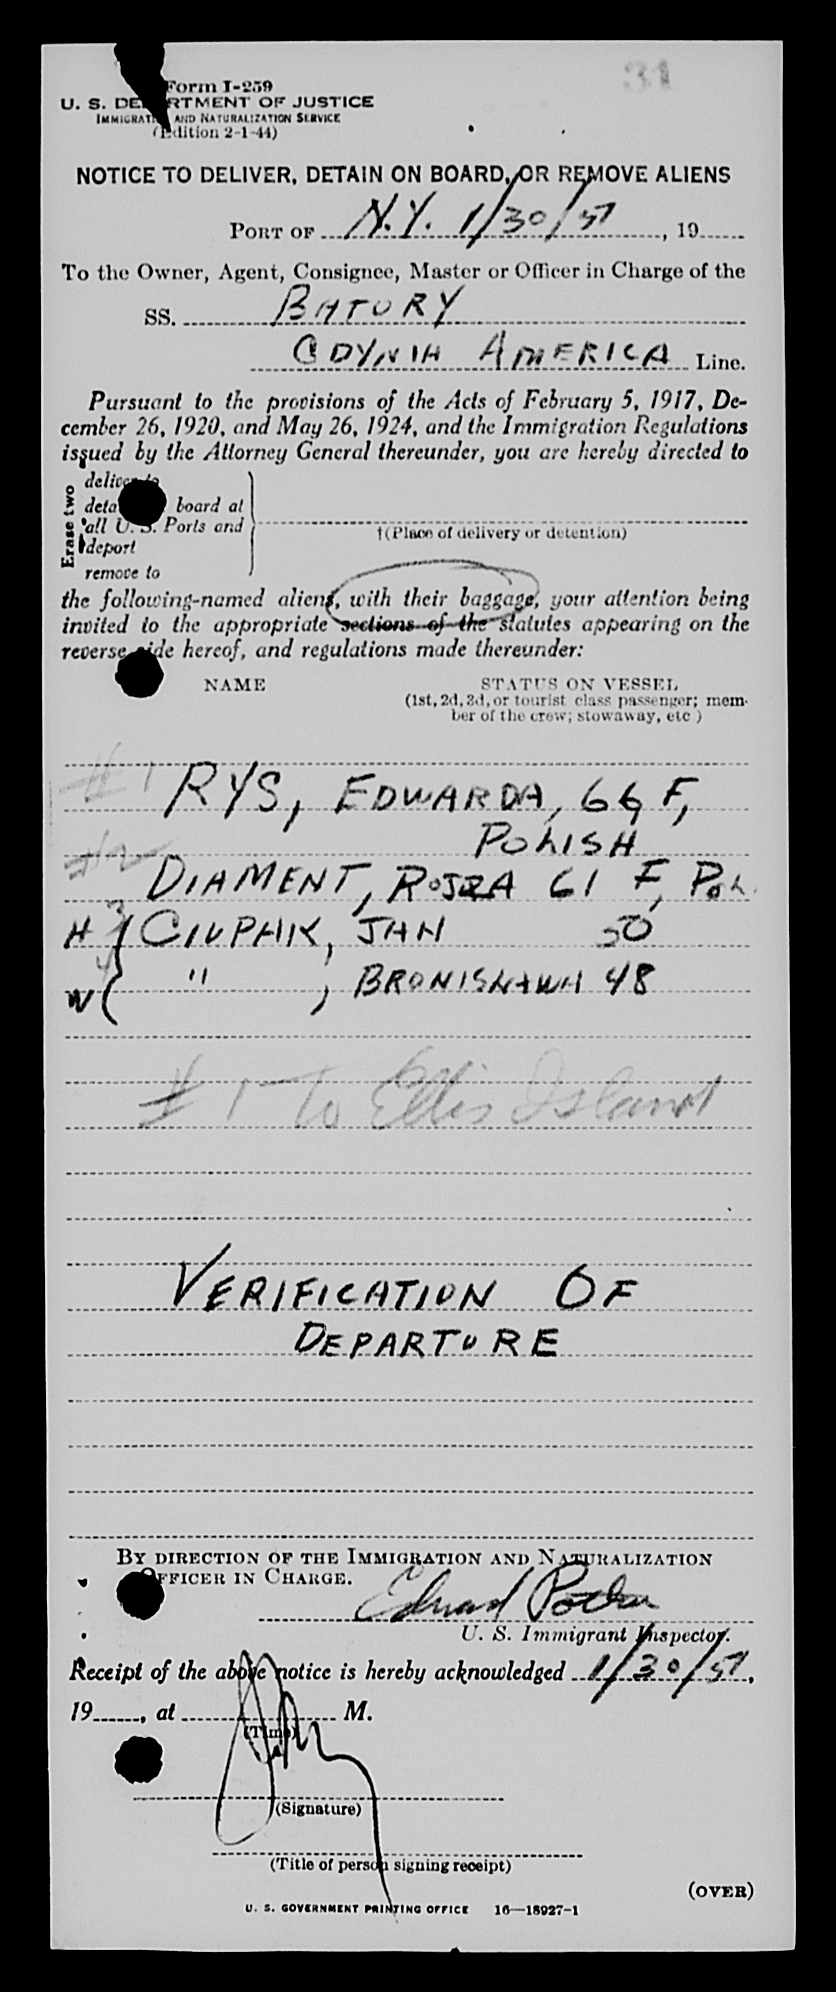 31
Form I-259
U. S. DEPARTMENT OF JUSTICE
IMMIGRATION AND NATURALIZATION SERVICE
(Edition 2-1-44)
NOTICE TO DELIVER, DETAIN ON BOARD, OR REMOVE ALIENS
PORT OF N.Y. 1/30/51, 19
To the Owner, Agent, Consignee, Master or Officer in Charge of the
SS. BATORY
GDYNIA AMERICA Line.
Pursuant to the provisions of the Acts of February 5, 1917, De-
cember 26, 1920, and May 26, 1924, and the Immigration Regulations
issued by the Attorney General thereunder, you are hereby directed to
Erase two
deliver to
detain board at
all U. S. Ports and
deport
remove to
†(Place of delivery or detention)
the following-named aliens, with their baggage, your attention being
invited to the appropriate sections of the statutes appearing on the
reverse side hereof, and regulations made thereunder:
NAME STATUS ON VESSEL
(1st, 2d, 3d, or tourist class passenger; mem-
ber of the crew; stowaway, etc.)
#1 RYS, EDWARDA, 66 F,
POLISH
#2 DIAMENT, ROJZA 61 F, POL.
H 3 { CIUPAK, JAN 50
W 4 { " , BRONISLAWA 48
#1 To Ellis Island
VERIFICATION OF
DEPARTURE
BY DIRECTION OF THE IMMIGRATION AND NATURALIZATION
OFFICER IN CHARGE.
Edward
U. S. Immigrant Inspector.
Receipt of the above notice is hereby acknowledged 1/30/51,
19, at M.
(Time)
(Signature)
(Title of person signing receipt)
(OVER)
U. S. GOVERNMENT PRINTING OFFICE 16—18927-1